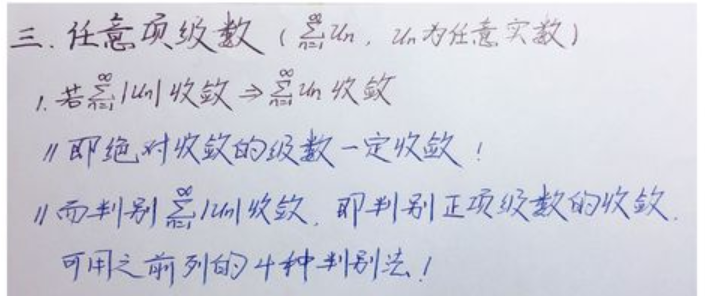 三.任意项级数（∑_{n=1}^{∞}Un，Un为任意实数）
1.若∑_{n=1}^{∞}|Un|收敛⇒∑_{n=1}^{∞}Un收敛
〃即绝对收敛的级数一定收敛！
〃而判别∑_{n=1}^{∞}|Un|收敛，即判别正项级数的收敛.
可用之前列的4种判别法！